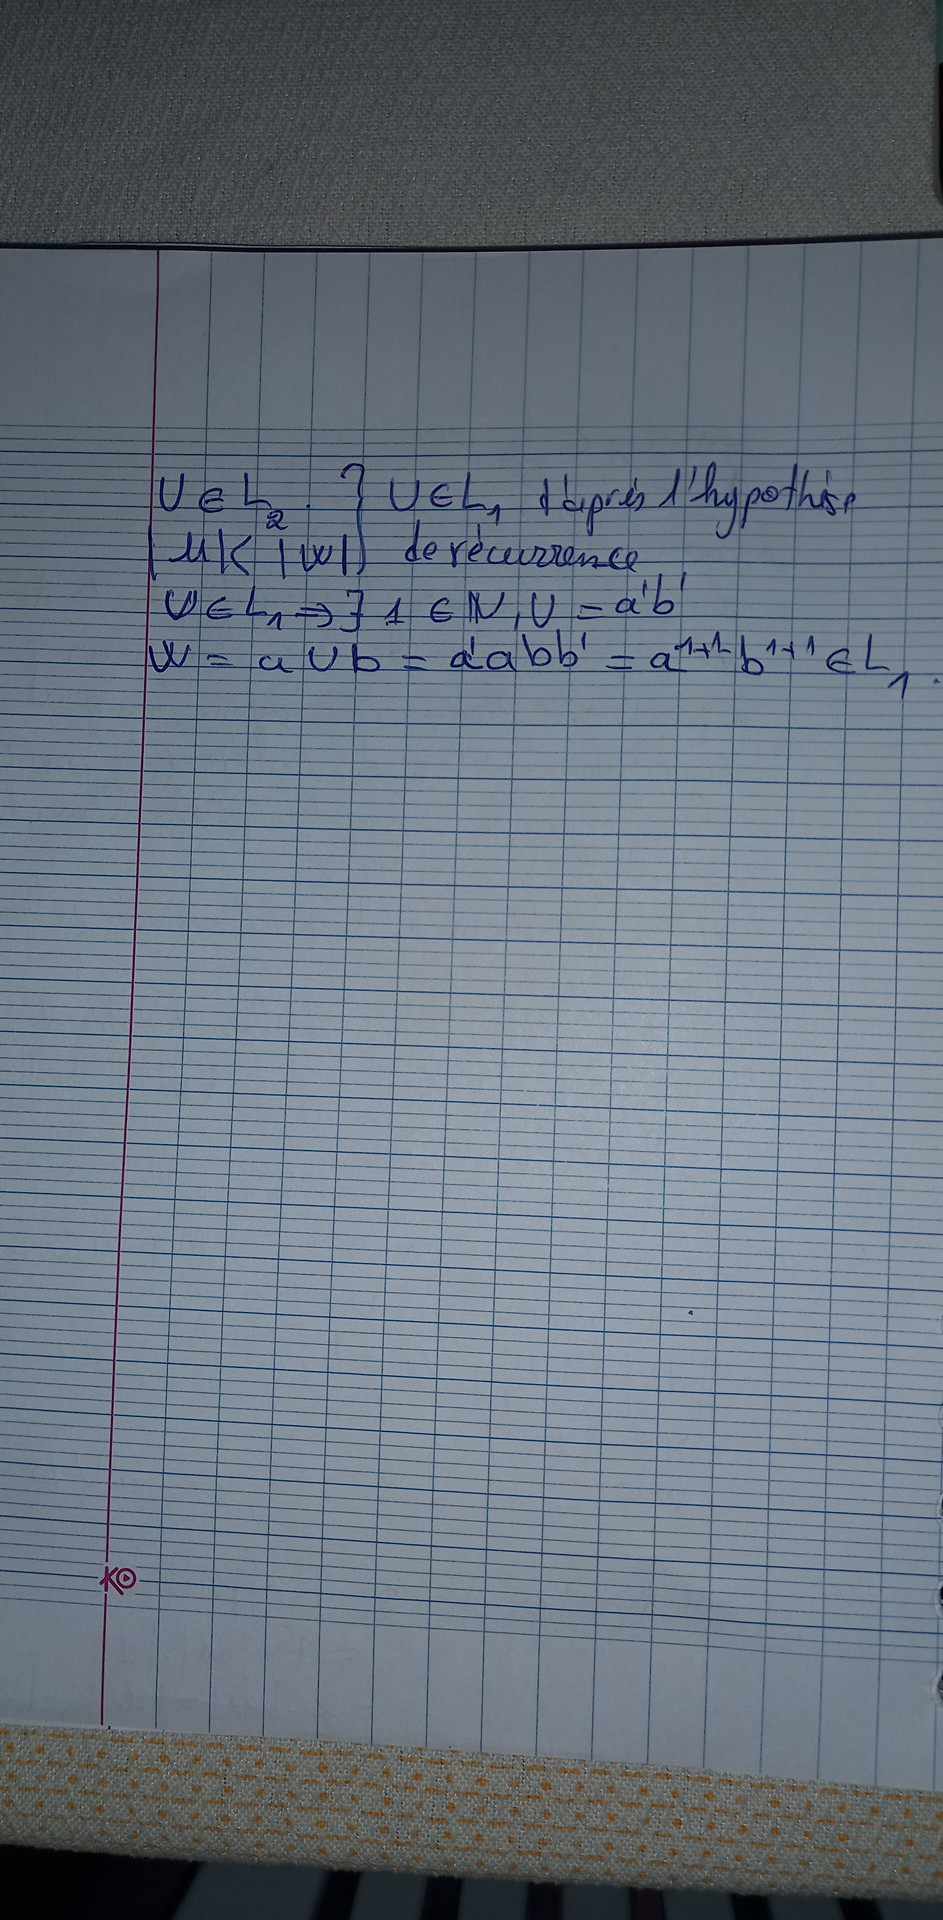 U ∈ L₂ . } U ∈ L₁ d'après l'hypothèse
|u|< |w| } de récurrence
U ∈ L₁ ⇒ ∃ 1 ∈ N, U = a¹b¹
W = a U b = a¹abb¹ = a¹⁺¹ b¹⁺¹ ∈ L₁.
KO